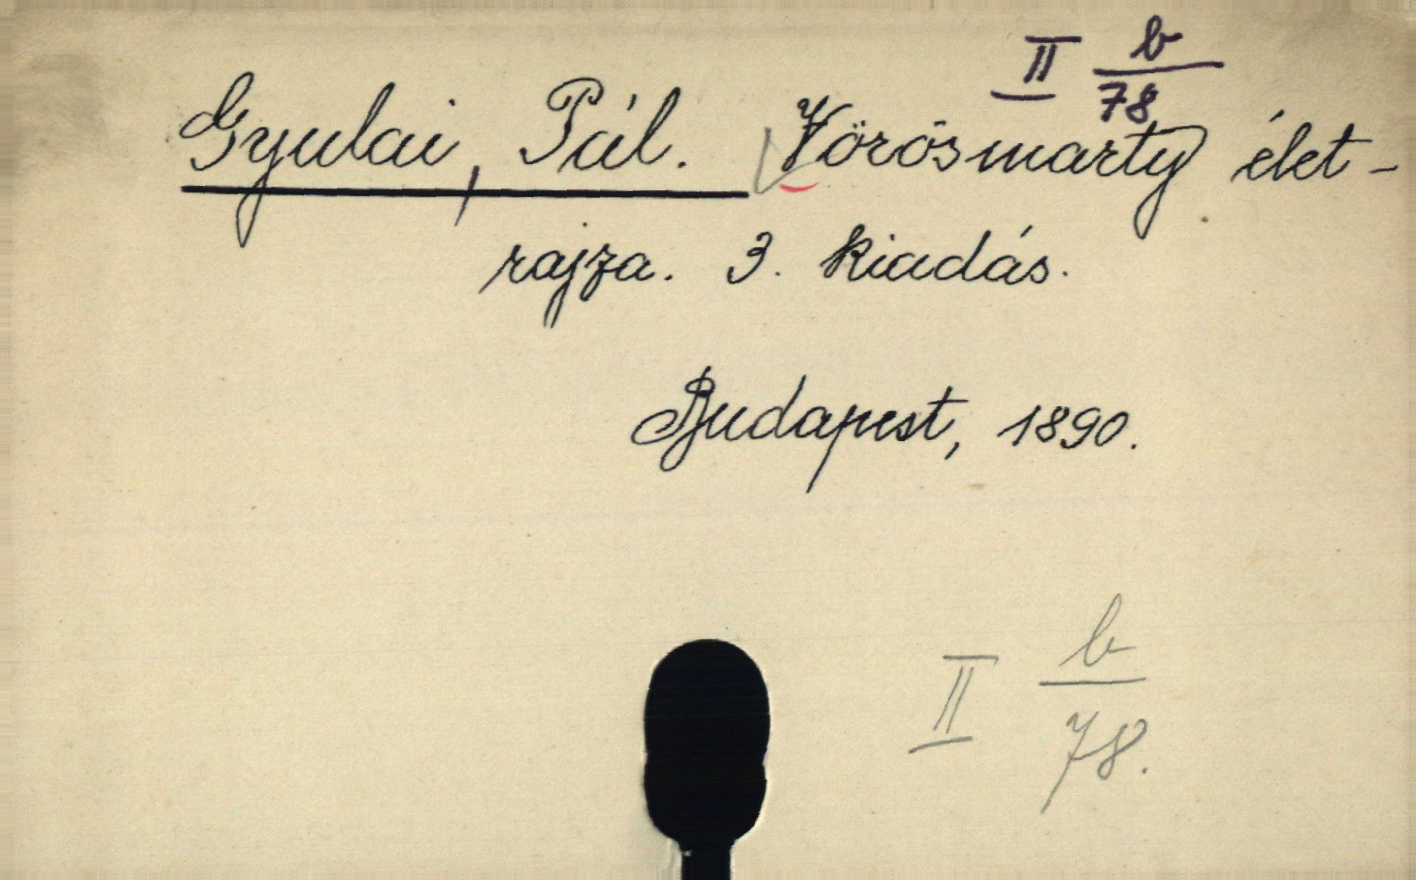 II b/78
Gyulai, Pál. Vörösmarty élet-
rajza. 3. kiadás.
Budapest, 1890.
II b/78.